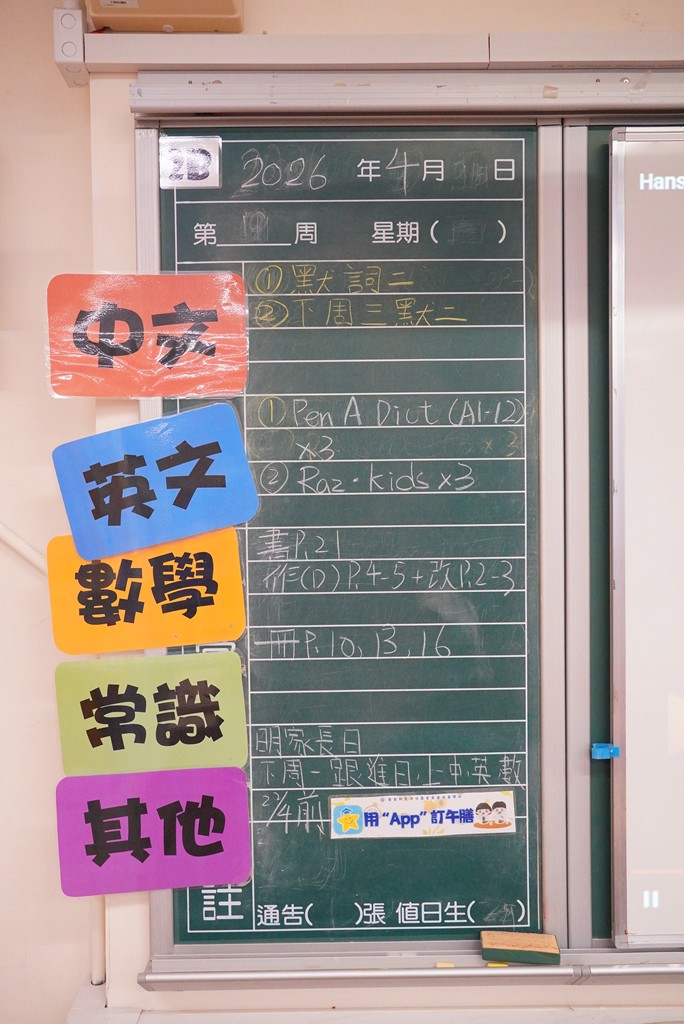 2B
2026 年 4 月 日
第 周 星期 ( )
中文
① 默詞二
② 下周三默二
英文
① Pen A Dict (A1-12)
x3
② Raz-kids x3
數學
書P.21
作(D) P.4-5 + 改P.2-3
常識
冊P.10, 13, 16
其他
明家長日
下周一跟進日,上中英數
22/4前
用“App”訂午膳
註
通告( )張 值日生( )
Hans